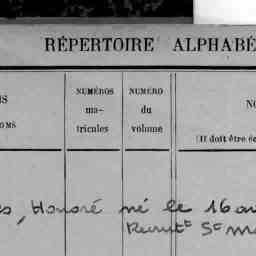 RÉPERTOIRE ALPHABÉ
NUMÉROS NUMÉRO
ma- du NO
tricules volume (Il doit être é
OMS
Honoré né le 16 
Recrutt St